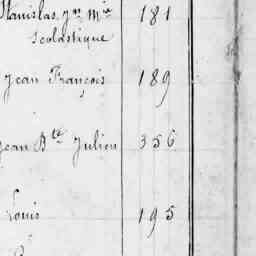 Stanislas, Jn Mie 181
Scolastique
Jean François 189
Jean Bte Julien 356
Louis 195